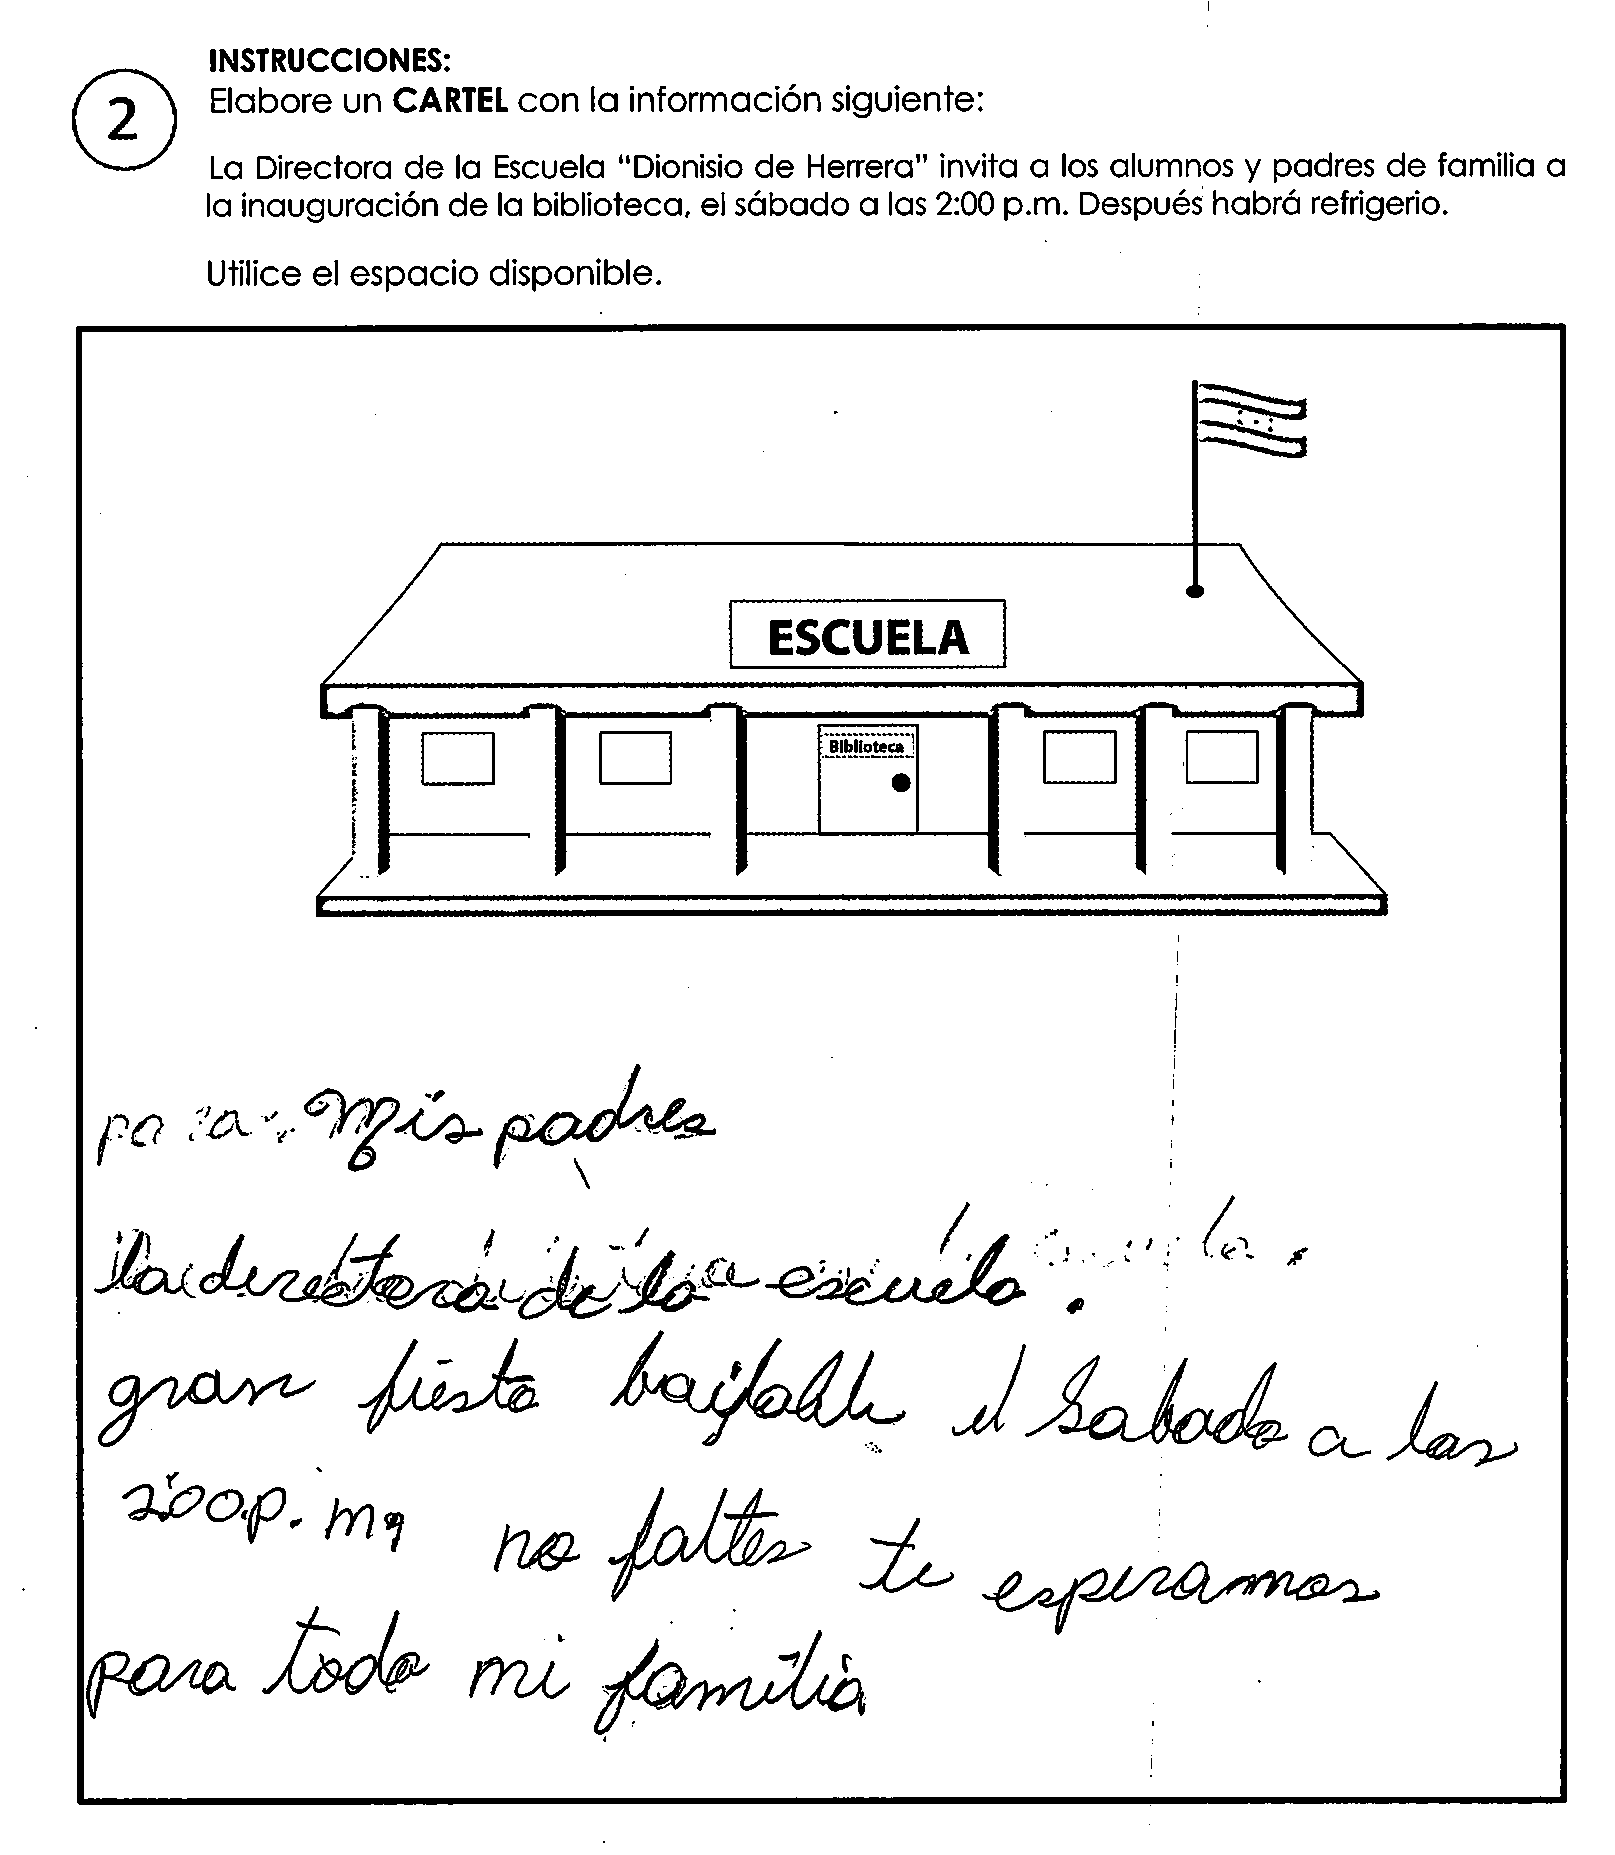 INSTRUCCIONES:
2
Elabore un CARTEL con la información siguiente:
La Directora de la Escuela "Dionisio de Herrera" invita a los alumnos y padres de familia a
la inauguración de la biblioteca, el sábado a las 2:00 p.m. Después habrá refrigerio.
Utilice el espacio disponible.
ESCUELA
Biblioteca
para Mis padres
la directora de la escuela.
gran fiesta bailable el Sabado a las
2:00 p.m. no faltes te esperamos
para toda mi familia